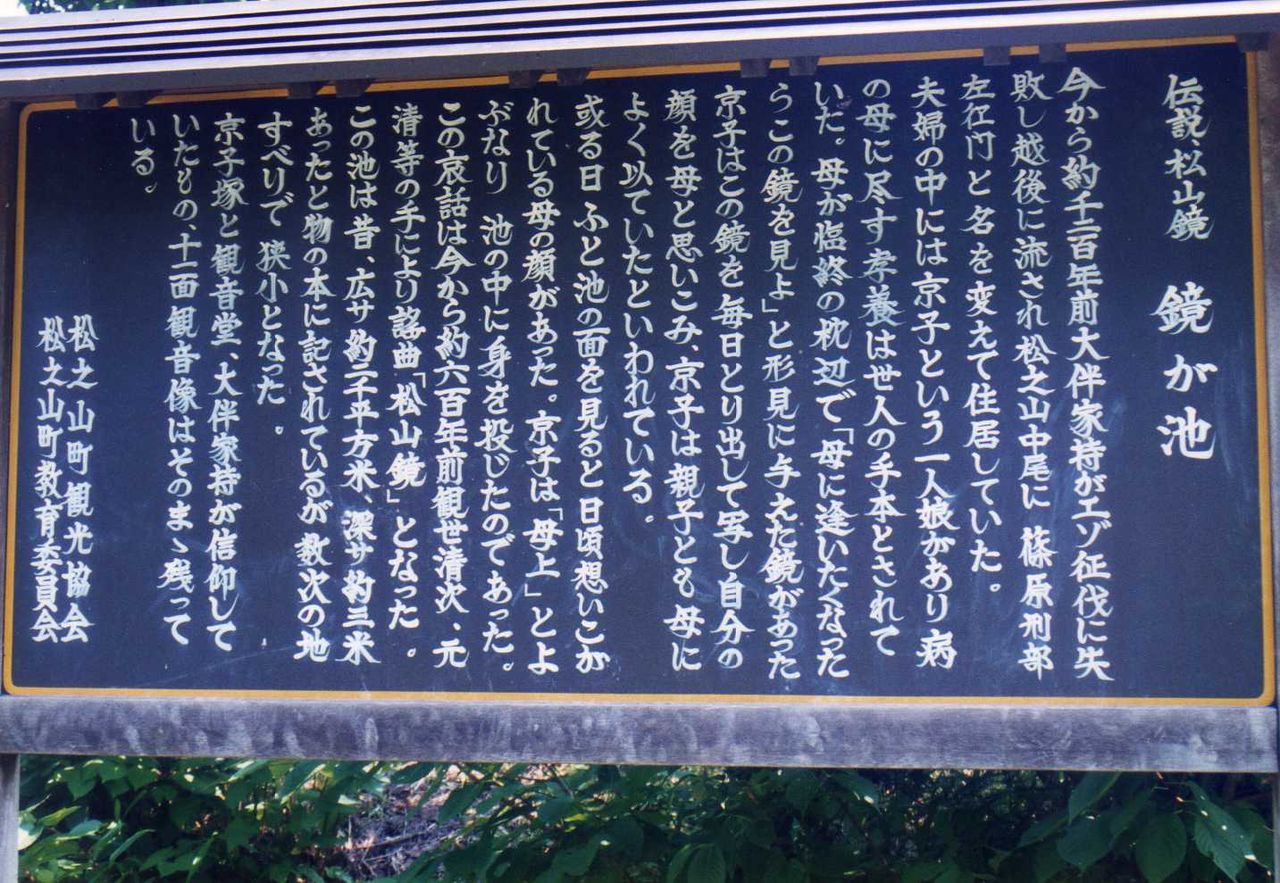 伝説、松山鏡 鏡が池
今から約千二百年前大伴家持がエゾ征伐に失
敗し越後に流され松之山中尾に 篠原刑部
左衛門と名を変えて住居していた。
夫婦の中には京子という一人娘があり病
の母に尽す孝養は世人の手本とされて
いた。母が臨終の枕辺で「母に逢いたくなった
らこの鏡を見よ」と形見に与えた鏡があった
京子はこの鏡を毎日とり出して写し自分の
顔を母と思いこみ、京子は親子とも母に
よく以ていたといわれている。
或る日ふと池の面を見ると日頃想いこが
れている母の顔があった。京子は「母上」とよ
ぶなり 池の中に身を投じたのであった。
この哀話は今から約六百年前観世清次、元
清等の手により謡曲「松山鏡」となった。
この池は昔、広サ約二千平方米、深サ約三米
あったと物の本に記されているが数次の地
すべりで 狭小となった。
京子塚と観音堂、大伴家持が信仰して
いたもの、十一面観音像はそのまゝ残って
いる。
松之山町観光協会
松之山町教育委員会